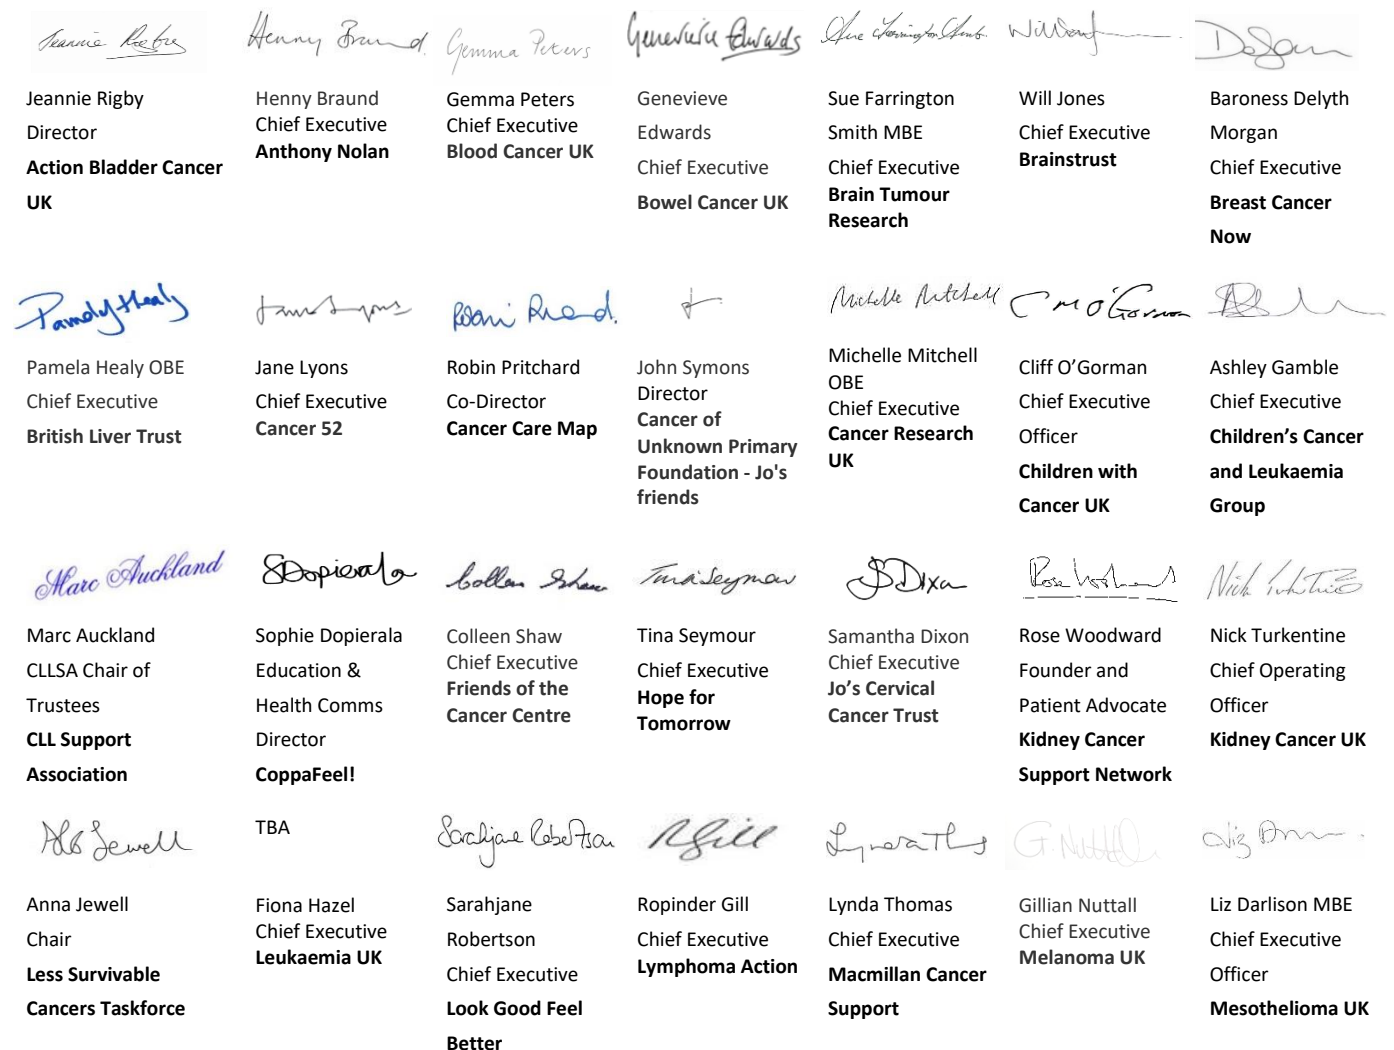 Henny Braund.
Gemma Peters
Genevieve Edwards
Jeannie Rigby
Director
Action Bladder Cancer
UK
Henny Braund
Chief Executive
Anthony Nolan
Gemma Peters
Chief Executive
Blood Cancer UK
Genevieve
Edwards
Chief Executive
Bowel Cancer UK
Sue Farrington
Smith MBE
Chief Executive
Brain Tumour
Research
Will Jones
Chief Executive
Brainstrust
Baroness Delyth
Morgan
Chief Executive
Breast Cancer
Now
Michelle Mitchell
C M O'Gorman
Pamela Healy OBE
Chief Executive
British Liver Trust
Jane Lyons
Chief Executive
Cancer 52
Robin Pritchard
Co-Director
Cancer Care Map
John Symons
Director
Cancer of
Unknown Primary
Foundation - Jo's
friends
Michelle Mitchell
OBE
Chief Executive
Cancer Research
UK
Cliff O’Gorman
Chief Executive
Officer
Children with
Cancer UK
Ashley Gamble
Chief Executive
Children’s Cancer
and Leukaemia
Group
Marc Auckland
SDopierala
Colleen Shaw
Tina Seymour
SDixon
Marc Auckland
CLLSA Chair of
Trustees
CLL Support
Association
Sophie Dopierala
Education &
Health Comms
Director
CoppaFeel!
Colleen Shaw
Chief Executive
Friends of the
Cancer Centre
Tina Seymour
Chief Executive
Hope for
Tomorrow
Samantha Dixon
Chief Executive
Jo’s Cervical
Cancer Trust
Rose Woodward
Founder and
Patient Advocate
Kidney Cancer
Support Network
Nick Turkentine
Chief Operating
Officer
Kidney Cancer UK
TBA
Sarahjane Robertson
RGill
G. Nuttall
Anna Jewell
Chair
Less Survivable
Cancers Taskforce
Fiona Hazel
Chief Executive
Leukaemia UK
Sarahjane
Robertson
Chief Executive
Look Good Feel
Better
Ropinder Gill
Chief Executive
Lymphoma Action
Lynda Thomas
Chief Executive
Macmillan Cancer
Support
Gillian Nuttall
Chief Executive
Melanoma UK
Liz Darlison MBE
Chief Executive
Officer
Mesothelioma UK